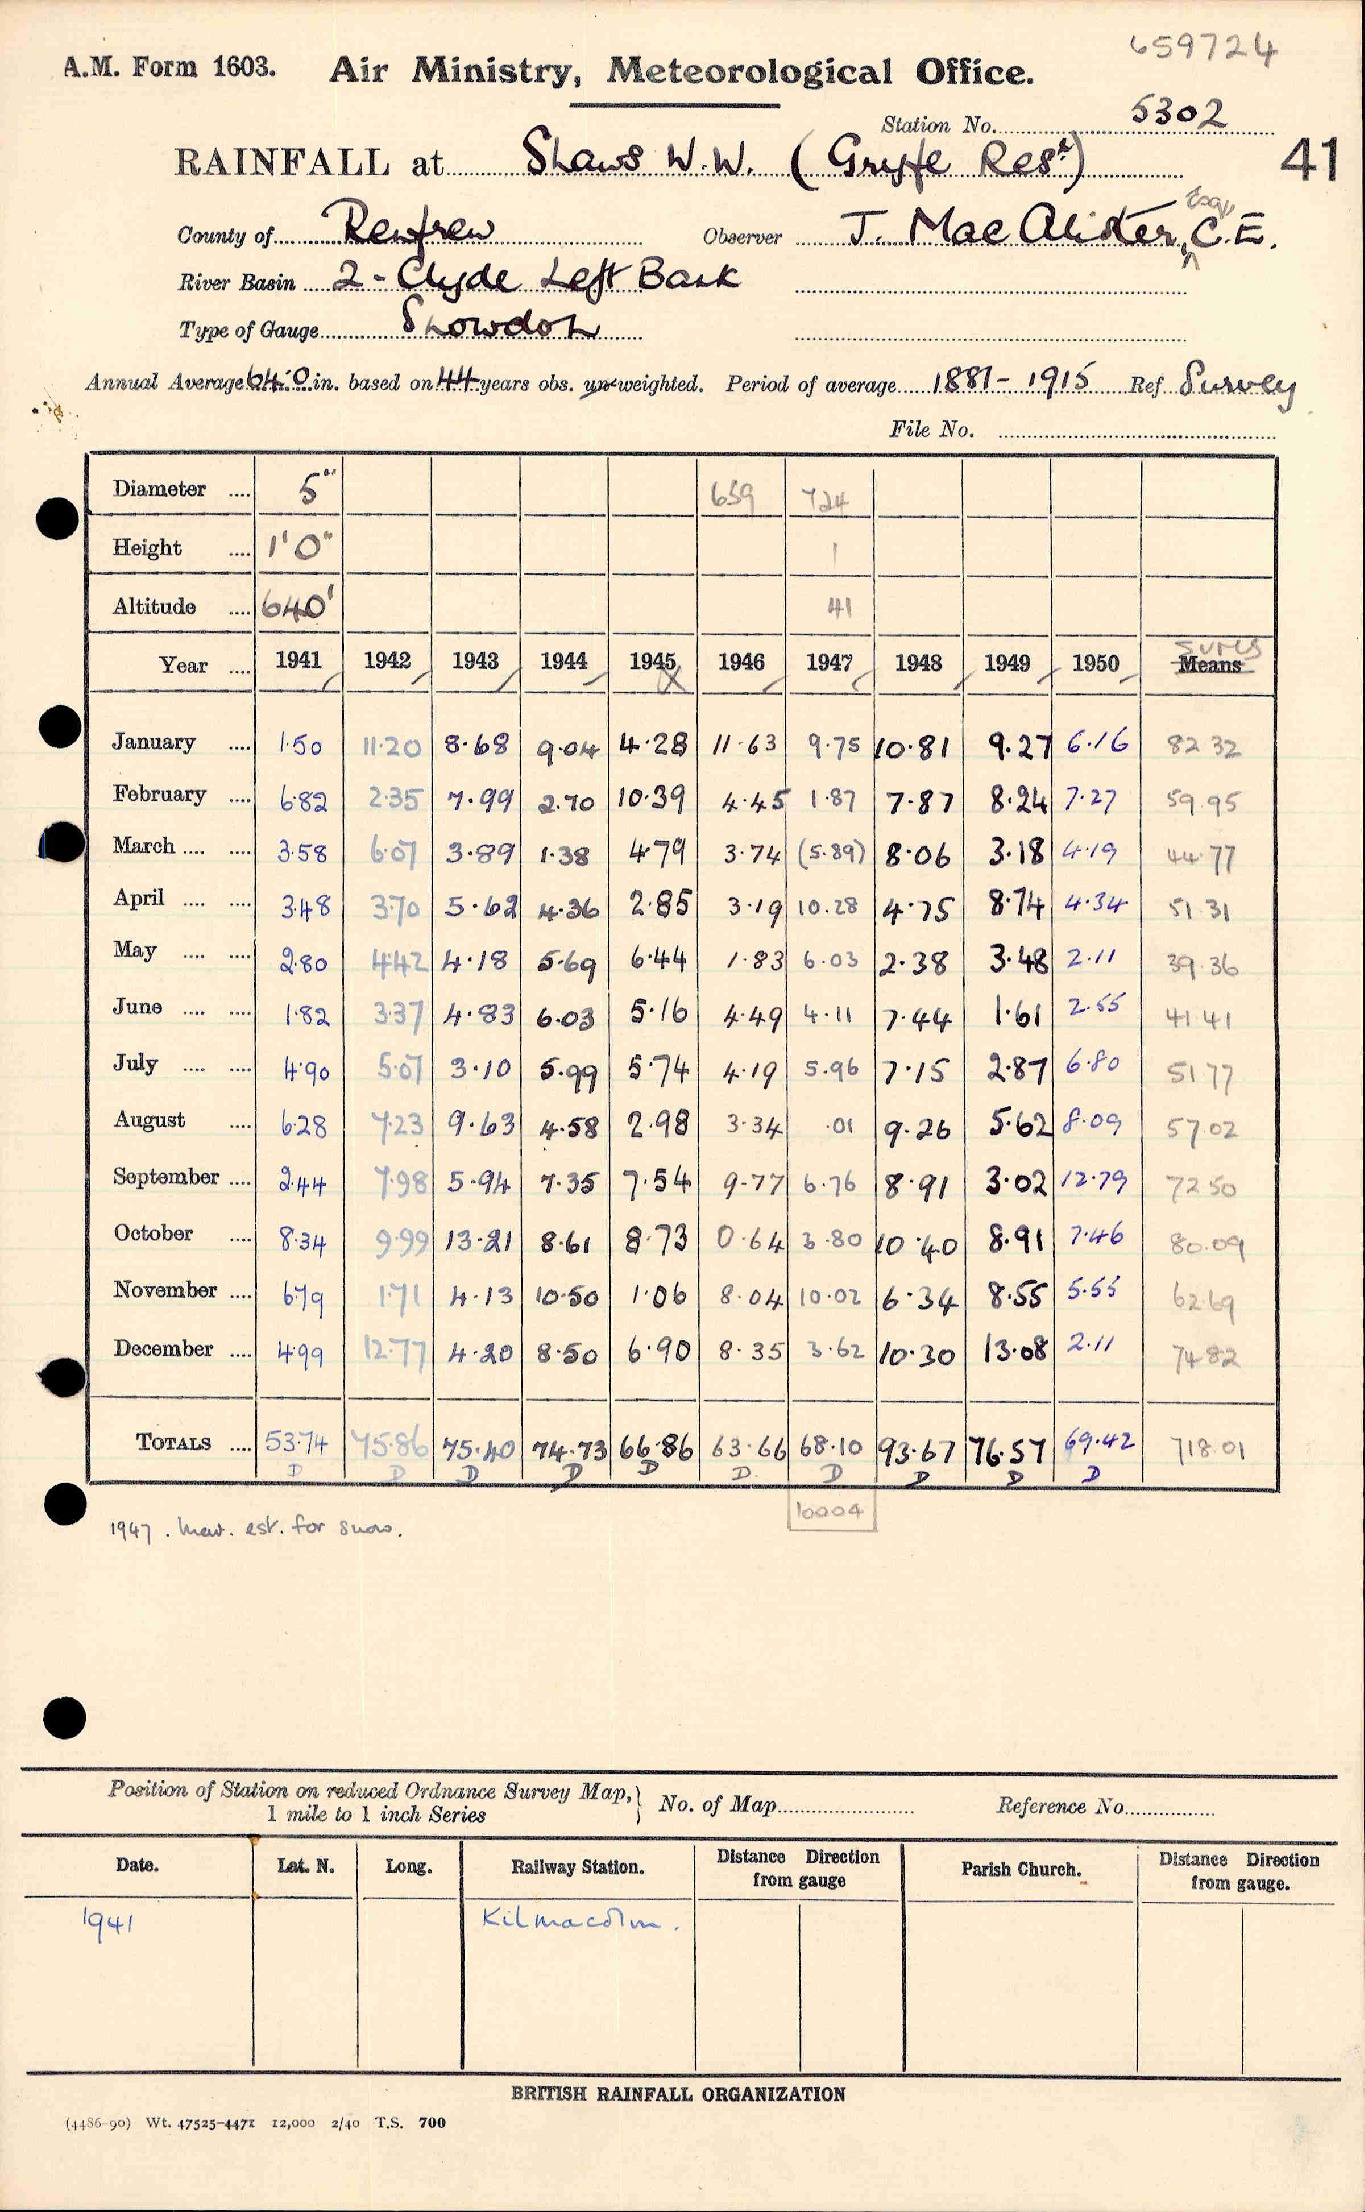 659724
A.M. Form 1603. Air Ministry, Meteorological Office.
Station No. 5302
RAINFALL at Shaws W.W. (Gryfe Resr) 41
County of Renfrew Observer J. MacAlister, Esq., C.E.
River Basin 2 - Clyde Left Bank
Type of Gauge Snowdon
Annual Average 64.0 in. based on 44 years obs. un-weighted. Period of average 1881-1915 Ref Survey
File No.
Diameter .... 5" 659 724
Height .... 1'0" 1
Altitude .... 640' 41
Year .... 1941 1942 1943 1944 1945 1946 1947 1948 1949 1950 Means SUMS
January .... 1.50 11.20 8.68 9.04 4.28 11.63 9.75 10.81 9.27 6.16 82 32
February .... 6.82 2.35 7.99 2.70 10.39 4.45 1.87 7.87 8.24 7.27 59.95
March .... .... 3.58 6.07 3.89 1.38 4.79 3.74 (5.89) 8.06 3.18 4.19 44.77
April .... .... 3.48 3.70 5.62 4.36 2.85 3.19 10.28 4.75 8.74 4.34 51 31
May .... .... 2.80 4.42 4.18 5.69 6.44 1.83 6.03 2.38 3.48 2.11 39.36
June .... .... 1.82 3.37 4.83 6.03 5.16 4.49 4.11 7.44 1.61 2.55 41 41
July .... .... 4.90 5.07 3.10 5.99 5.74 4.19 5.96 7.15 2.87 6.80 51 77
August .... 6.28 7.23 9.63 4.58 2.98 3.34 .01 9.26 5.62 8.09 57 02
September .... 2.44 7.98 5.94 7.35 7.54 9.77 6.76 8.91 3.02 12.79 72 50
October .... 8.34 9.99 13.21 8.61 8.73 0.64 3.80 10.40 8.91 7.46 80.09
November .... 6.79 1.71 4.13 10.50 1.06 8.04 10.02 6.34 8.55 5.55 62.69
December .... 4.99 12.77 4.20 8.50 6.90 8.35 3.62 10.30 13.08 2.11 74 82
TOTALS .... 53.74 75.86 75.40 74.73 66.86 63.66 68.10 93.67 76.57 69.42 718.01
D D D D D D D D D D
10004
1947. Mar. est. for snow.
Position of Station on reduced Ordnance Survey Map,
1 mile to 1 inch Series } No. of Map Reference No
Date. Lat. N. Long. Railway Station. Distance Direction from gauge Parish Church. Distance Direction from gauge.
1941 Kilmacolm.
BRITISH RAINFALL ORGANIZATION
(4486-90) Wt. 47525-4471 12,000 2/40 T.S. 700